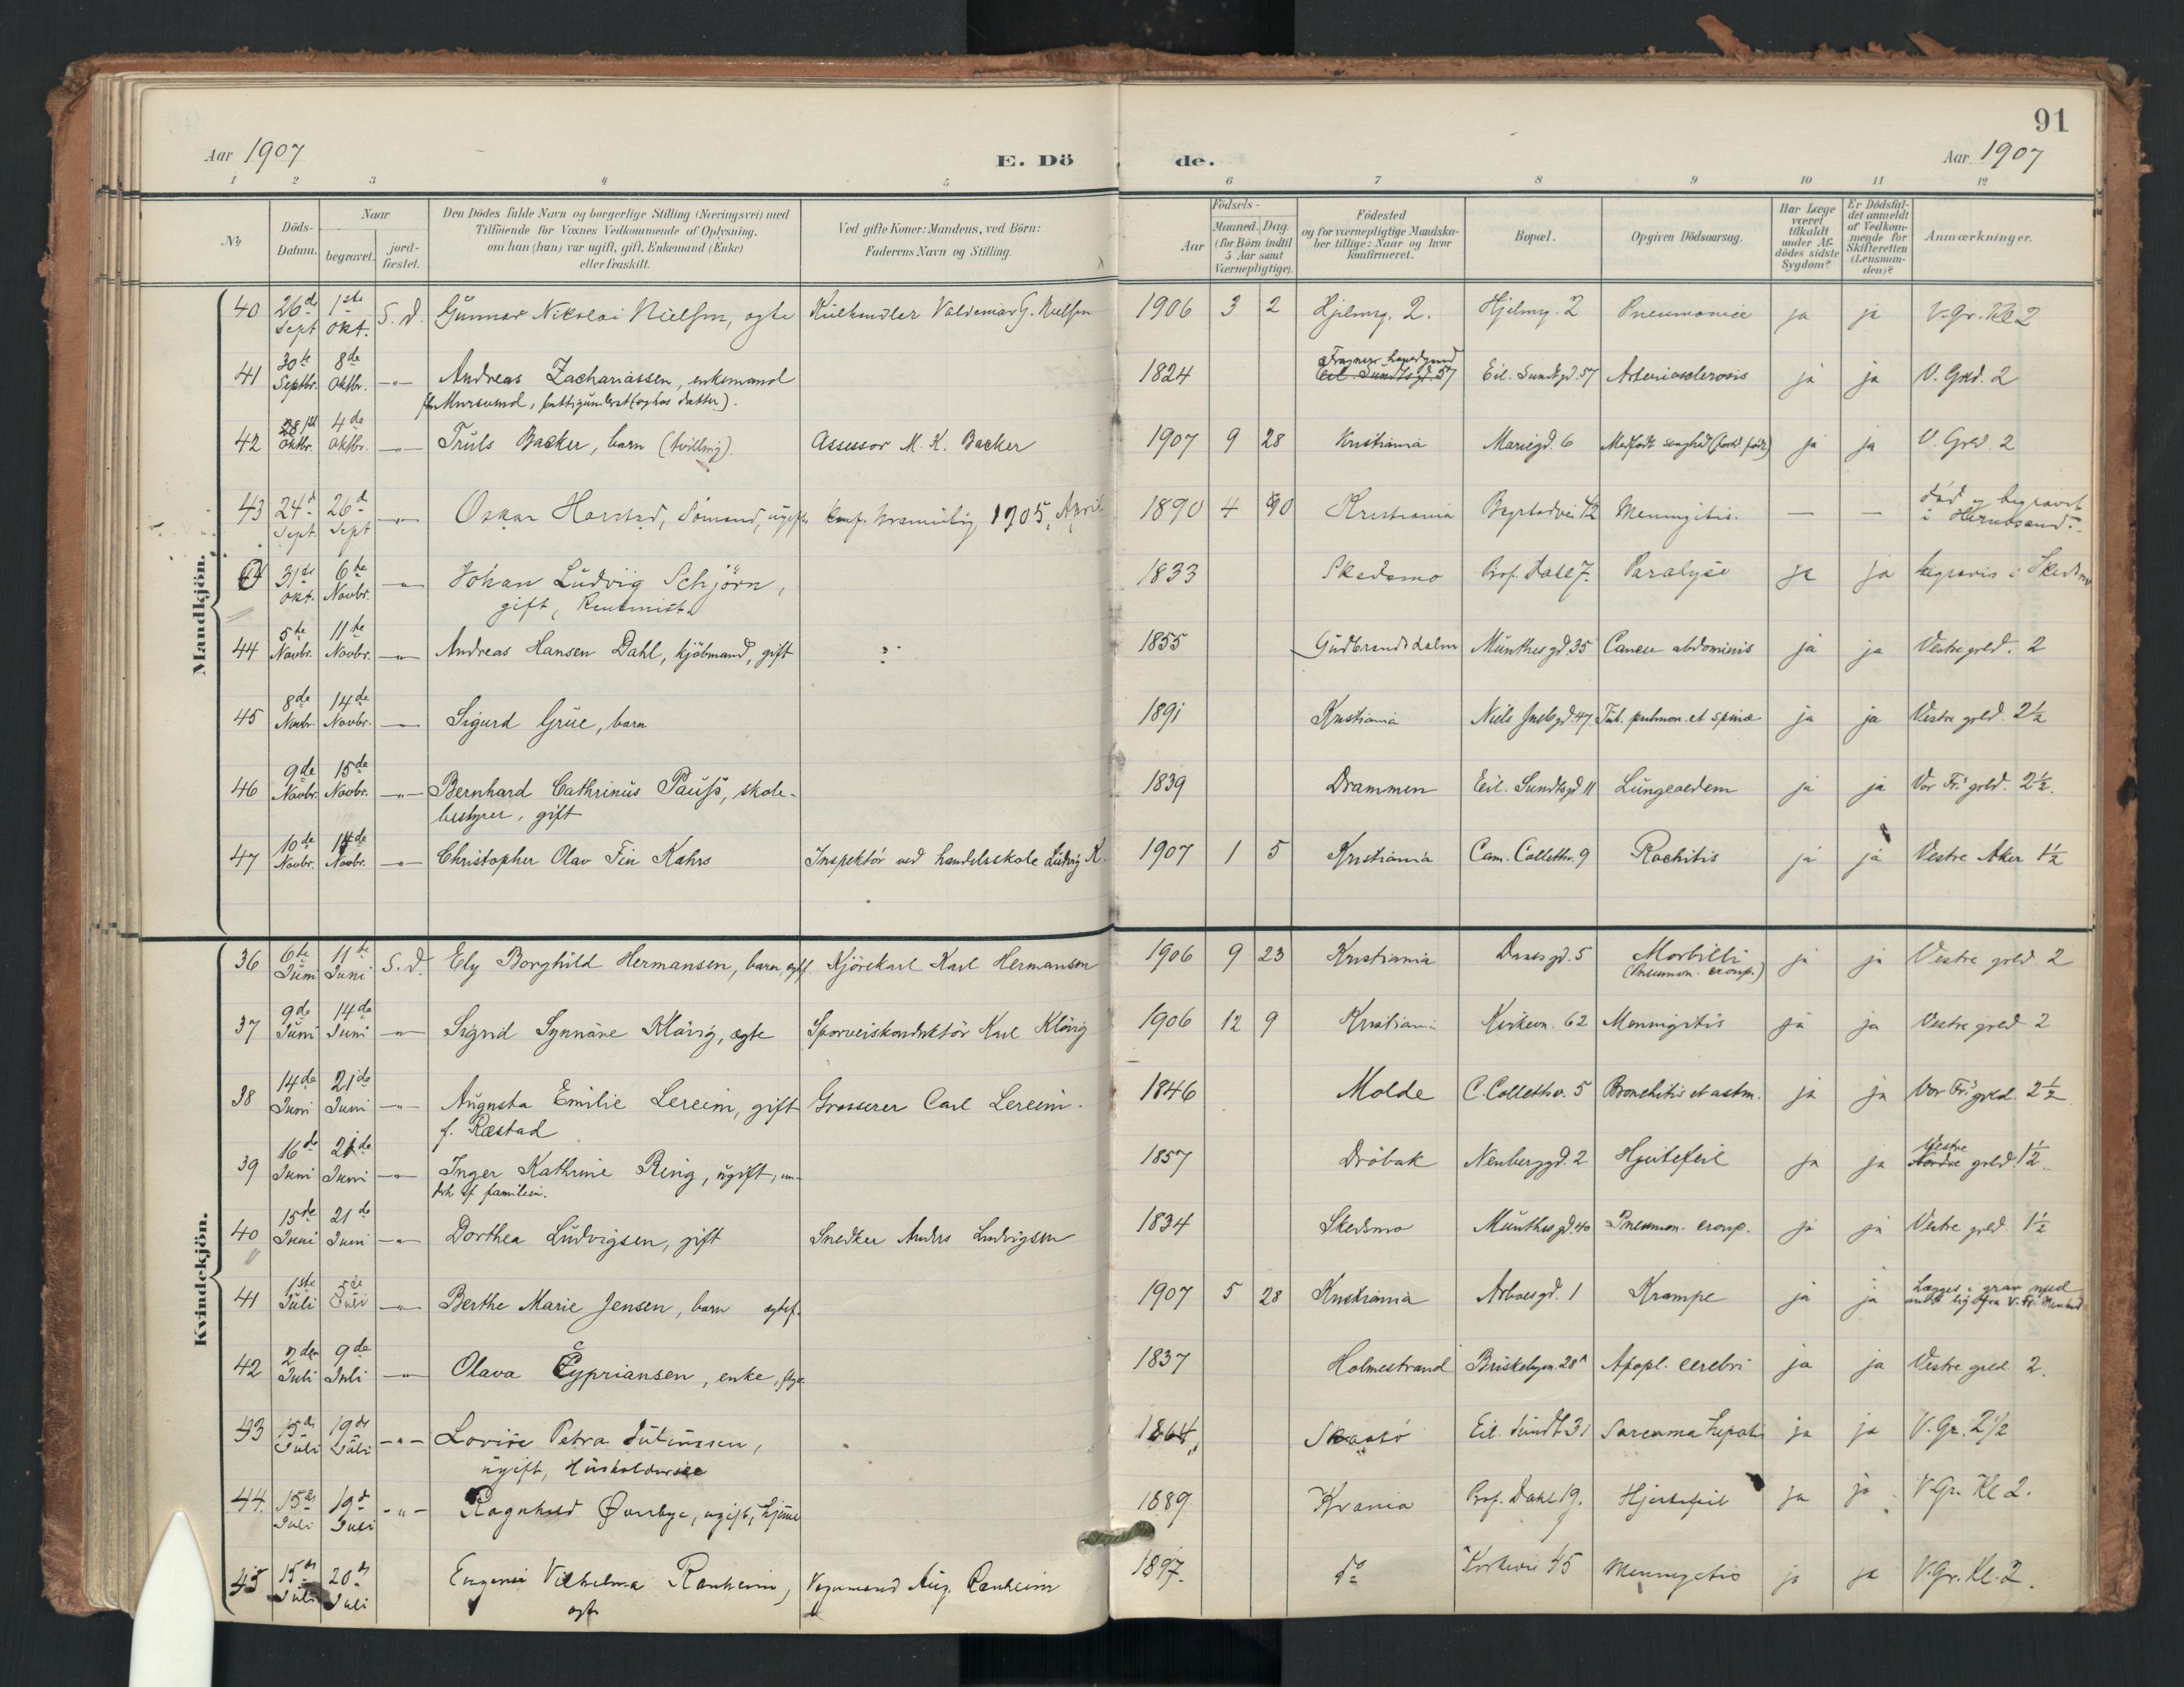 91
Aar 1907
E. Dö
de.
Aar 1907
1 2 3 4 5 6 7 8 9 10 11 12
№
Döds-
Datum.
Naar
begravet.
jord-
fæstet.
Den Dödes fulde Navn og borgerlige Stilling (Næringsvei) med
Tilföiende for Voxnes Vedkommende af Oplysning,
om han (hun) var ugift, gift, Enkemand (Enke)
eller fraskilt.
Ved gifte Koner: Mandens, ved Börn:
Faderens Navn og Stilling.
Födsels-
Aar
Maaned.
Dag.
(for Börn indtil
5 Aar samt
Værnepligtige).
Födested
og for værnepligtige Mandska-
ber tillige: Naar og hvor
konfirmeret.
Bopæl.
Opgiven Dödsaarsag.
Har Læge
været
tilkaldt
under Af-
dödes sidste
Sygdom?
Er Dödsfal-
det anmeldt
af Vedkom-
mende for
Skifteretten
(Lensman-
den)?
Anmærkninger.
Mandkjön.
40 26d Sept 1ste Okt. S. d. Gunnar Nikolai Nielsen, ægte Valdemar G. Nielsen 1906 3 2 Hjelmsg. 2. Hjelmsg. 2 Pneumonie ja ja V. Gr. Kl 2
41 30te Septbr. 8de Oktbr. -"- Andreas Zachariassen, enkemand 1824 Eil. Sundtsgd. 57 Eil. Sundtsgd. 57 Arteriosclerosis ja ja V. Grld. 2
42 Oktbr. 4de Oktbr. -"- Truls Backer, barn (tvilling) Assessor M. K. Backer 1907 9 28 Kristiania Mariegd. 6 Medfødt svaghed ja ja V. Grld 2
43 24d Sept. 26d Sept -"- Oskar Harstad, Sömand, ugift 1905, April 1890 4 Kristiania Meningitis. — — död og begravet
i Hernösand.
31de Okt. 6te Novbr. -"- Johan Ludvig Schjörn,
gift, 1833 Skedsmo Prof. Dahl 7. Paralyse ja ja begraves i Skedsmo
44 5te Novbr. 11te Novbr. -"- Andreas Hansen Dahl, kjöbmand, gift ? 1855 Gudbrandsdalen Munthesgd. 35 Cancer abdominis ja ja Vestre grld. 2
45 8de Novbr. 14de Novbr. -"- Sigurd Grüe, barn 1891 Kristiania Niels Juelsgd. 47 Tub. pulmon. et spinæ ja ja Vestre grld. 2½
46 9de Novbr. 15de Novbr. -"- Bernhard Cathrinus Pauss, skole-
bestyrer, gift 1839 Drammen Eil. Sundtsgd 11 Lungeoedem ja ja Vor Fr.s grld. 2½.
47 10de Novbr. 14de Novbr. -"- Christopher Olav Fin Kahrs Inspektör ved handelsskole Ludvig K. 1907 1 5 Kristiania Cam. Collettsv. 9 Rachitis ja ja Vestre Aker 1½
Kvindekjön.
36 6te Juni 11te Juni S. d. Ely Borghild Hermansen, barn, Kjörekarl Karl Hermansen 1906 9 23 Kristiania Daasgd. 5 Morbilli
(Pneumon. croup.) ja ja Vestre grld. 2
37 9de Juni 14de Juni -"- Sigrid Synnöve Klövig, ægte Sporveiskonduktör Karl Klövig 1906 12 9 Kristiania Kirkevn. 62 Meningitis ja ja Vestre grld 2
38 14de Juni 21de Juni -"- Augusta Emilie Lereim, gift
f. Ræstad Grosserer Carl Lereim. 1846 Molde C. Collettsv. 5 Bronchitis et astm. ja ja Vor Fr.s grld. 2½
39 16de Juni 21de Juni -"- Inger Kathrine Ring, ugift, un-
derh. af familien. 1857 Dröbak Neuberggd. 2 Hjertefeil ja ja Vestre
Nordre grld. 1½.
40 15de Juni 21de Juni -"- Dorthea Ludvigsen, gift Snedker Anders Ludvigsen 1834 Skedsmo Munthesgd. 40 Pneumon. croup. ja ja Vestre grld. 1½
41 1ste Juli 5de Juli -"- Berthe Marie Jensen, barn ægtef. 1907 5 28 Kristiania Arboesgd. 1 Krampe ja ja Lægges i grav med
42 2den Juli 9de Juli -"- Olava Cypriansen, enke, 1837 Holmestrand Briskebyvn. 28A Apopl. cerebri ja ja Vestre grld 2.
43 15de Juli 19de Juli -"- Lovise Petra Juliussen,
ugift, Husholderske 1864 Skaatö Eil. Sundt 31 Sarcoma hepatis ja ja V. Gr. 2½
44. 15de Juli 19d Juli -"- Ragnhild Øverbye, ugift, hjemme 1889 Krania Prof. Dahl 19. Hjertefeil ja ja V. Gr. Kl 2.
45 15de Juli 20de Juli Eugenie Vilhelmा Ranheim,
ægte Vognmand Aug. Ranheim 1897. do Kirkevei 45 Meningitis ja ja V. Gr. Kl. 2.